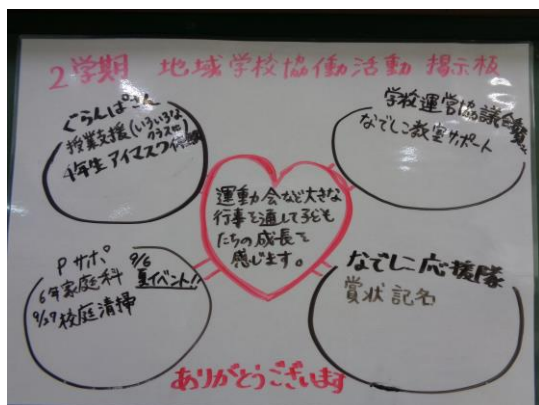 2学期 地域学校協働活動 掲示板
ぐらんぱさん
授業支援(いろいろな
クラスで)
4年生アイマスク体験
学校運営協議会委員さん
なでしこ教室サポート
運動会など大きな
行事を通して子ども
たちの成長を
感じます。
Pサポ
6年家庭科
9/27校庭清掃
9/6
夏イベント!!
なでしこ応援隊
賞状記名
ありがとうございます